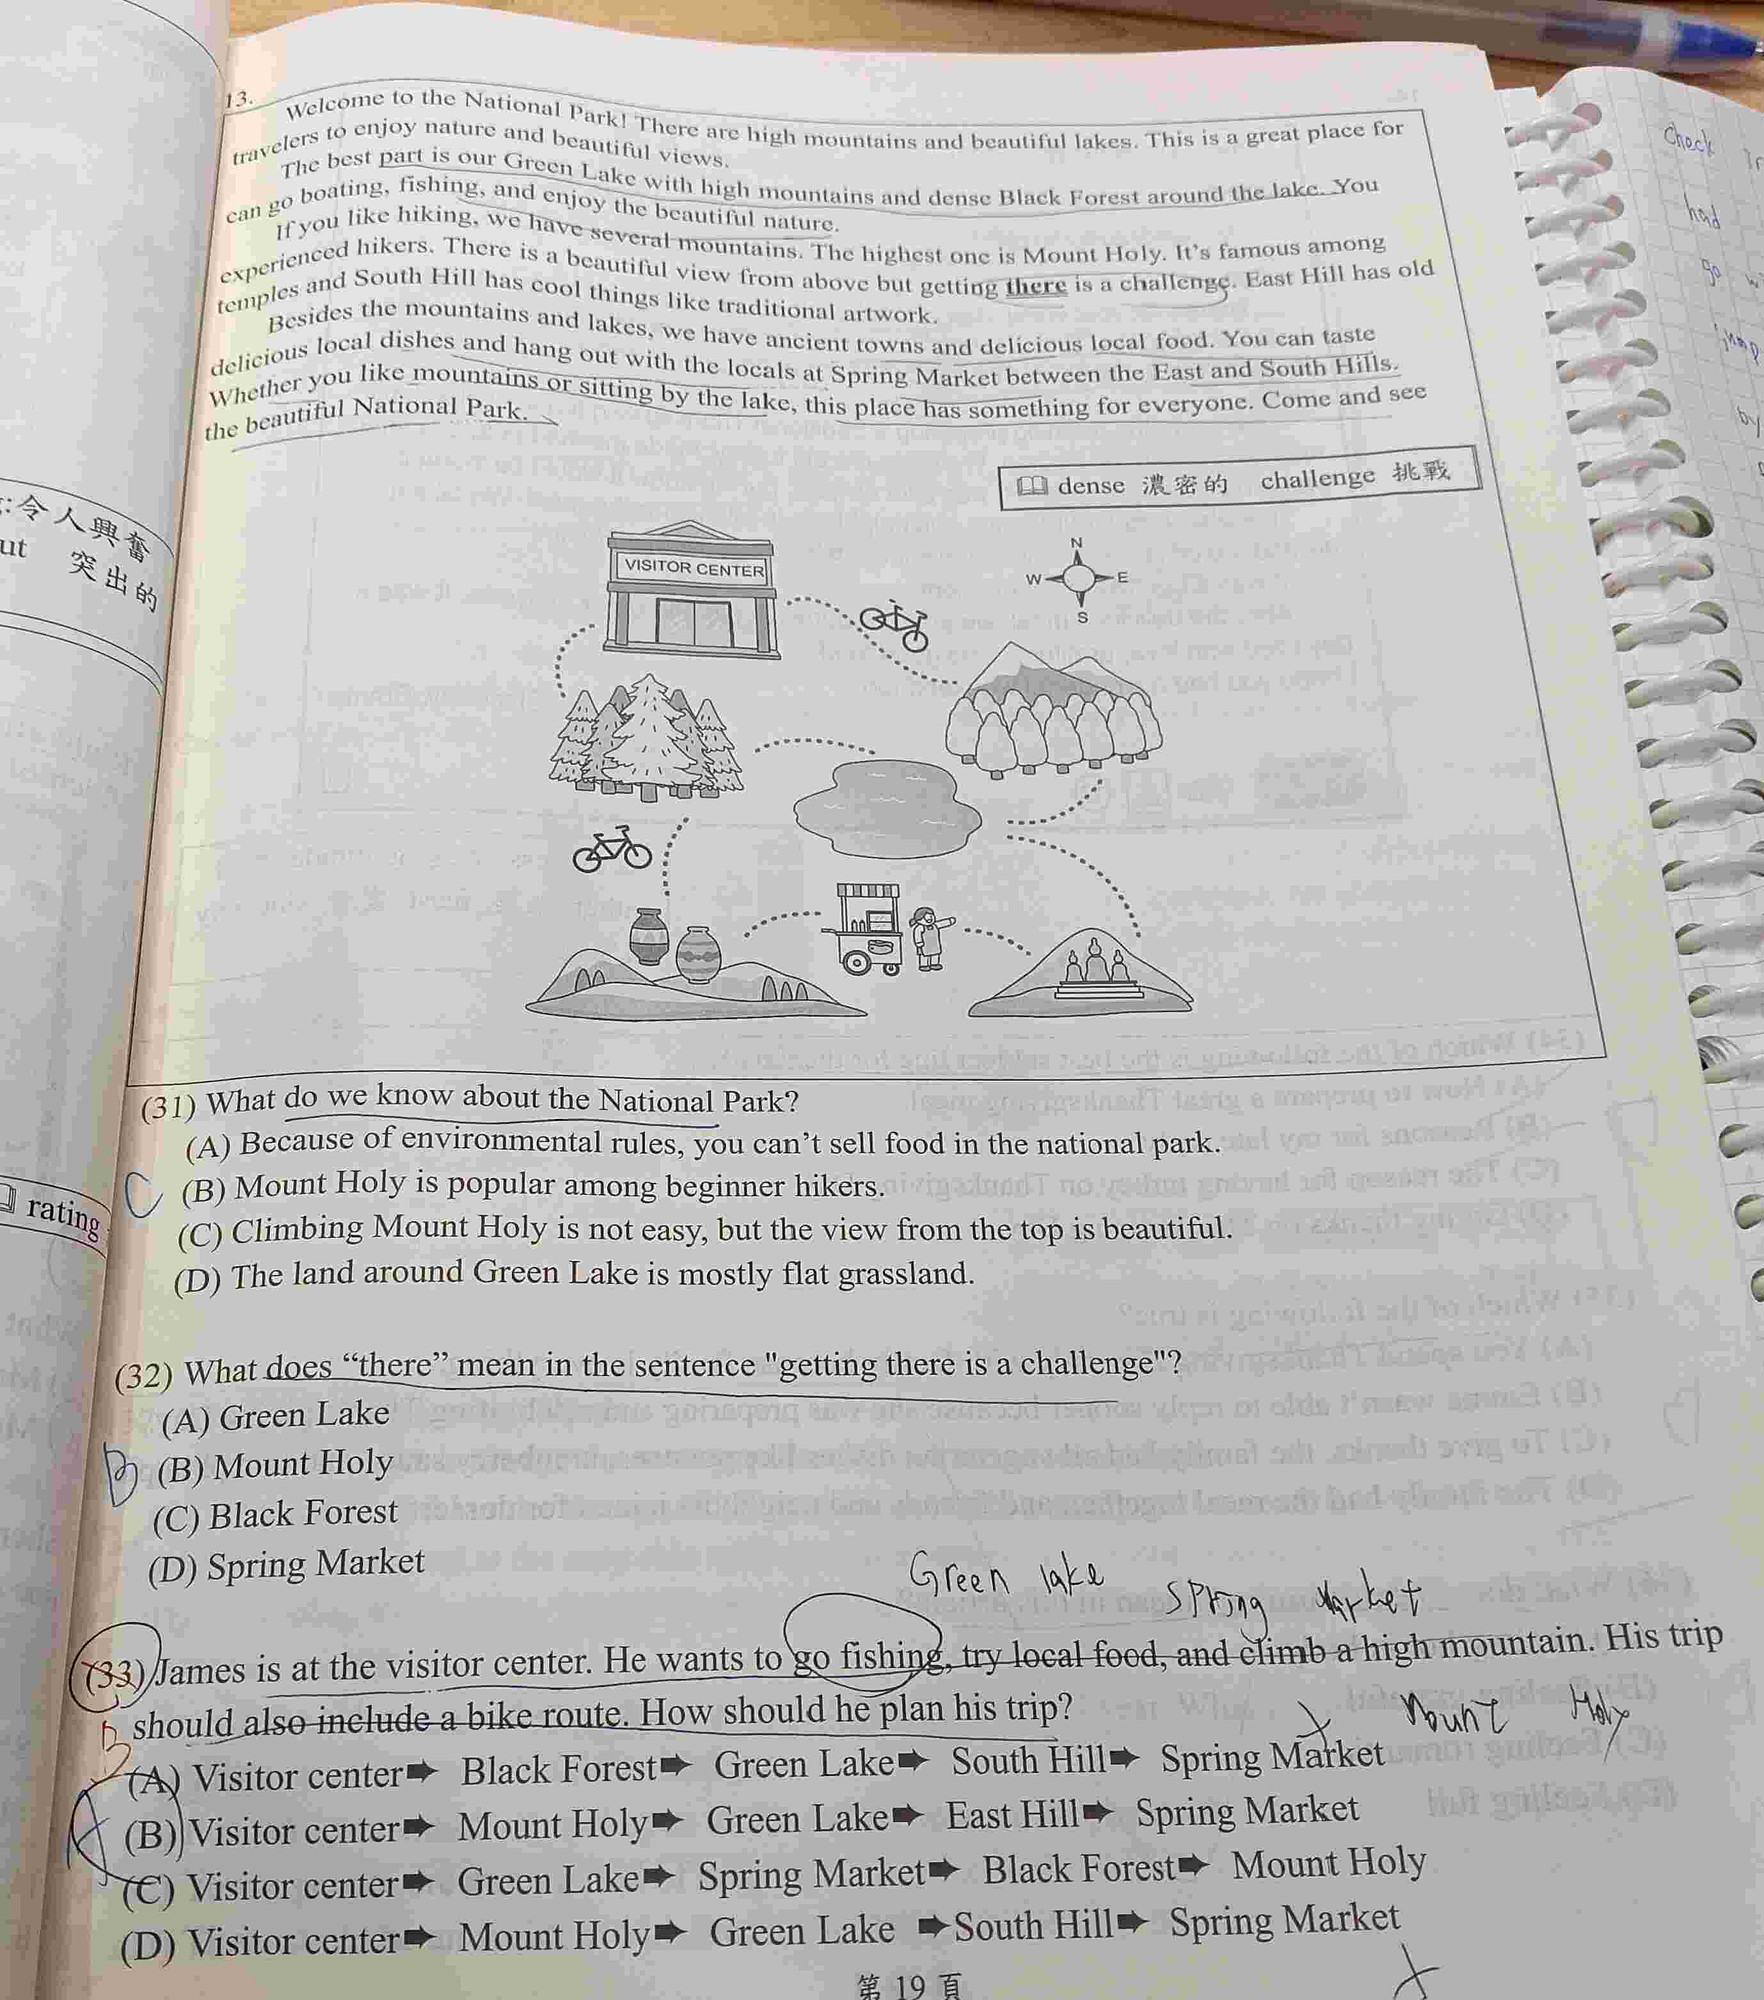 13.
Welcome to the National Park! There are high mountains and beautiful lakes. This is a great place for
travelers to enjoy nature and beautiful views.
The best part is our Green Lake with high mountains and dense Black Forest around the lake. You
can go boating, fishing, and enjoy the beautiful nature.
If you like hiking, we have several mountains. The highest one is Mount Holy. It's famous among
experienced hikers. There is a beautiful view from above but getting there is a challenge. East Hill has old
temples and South Hill has cool things like traditional artwork.
Besides the mountains and lakes, we have ancient towns and delicious local food. You can taste
delicious local dishes and hang out with the locals at Spring Market between the East and South Hills.
Whether you like mountains or sitting by the lake, this place has something for everyone. Come and see
the beautiful National Park.
dense 濃密的 challenge 挑戰
:令人興奮
ut 突出的
VISITOR CENTER
N
W E
S
(31) What do we know about the National Park?
(A) Because of environmental rules, you can't sell food in the national park.
C (B) Mount Holy is popular among beginner hikers.
rating
(C) Climbing Mount Holy is not easy, but the view from the top is beautiful.
(D) The land around Green Lake is mostly flat grassland.
(32) What does “there” mean in the sentence "getting there is a challenge"?
(A) Green Lake
B (B) Mount Holy
(C) Black Forest
(D) Spring Market
Green lake Spring Market
(33) James is at the visitor center. He wants to go fishing, try local food, and climb a high mountain. His trip
B should also include a bike route. How should he plan his trip?
Mount Holy
(A) Visitor center➡ Black Forest➡ Green Lake➡ South Hill➡ Spring Market
(B) Visitor center➡ Mount Holy➡ Green Lake➡ East Hill➡ Spring Market
(C) Visitor center➡ Green Lake➡ Spring Market➡ Black Forest➡ Mount Holy
(D) Visitor center➡ Mount Holy➡ Green Lake ➡South Hill➡ Spring Market
第 19 頁
check
had
go
jump
by